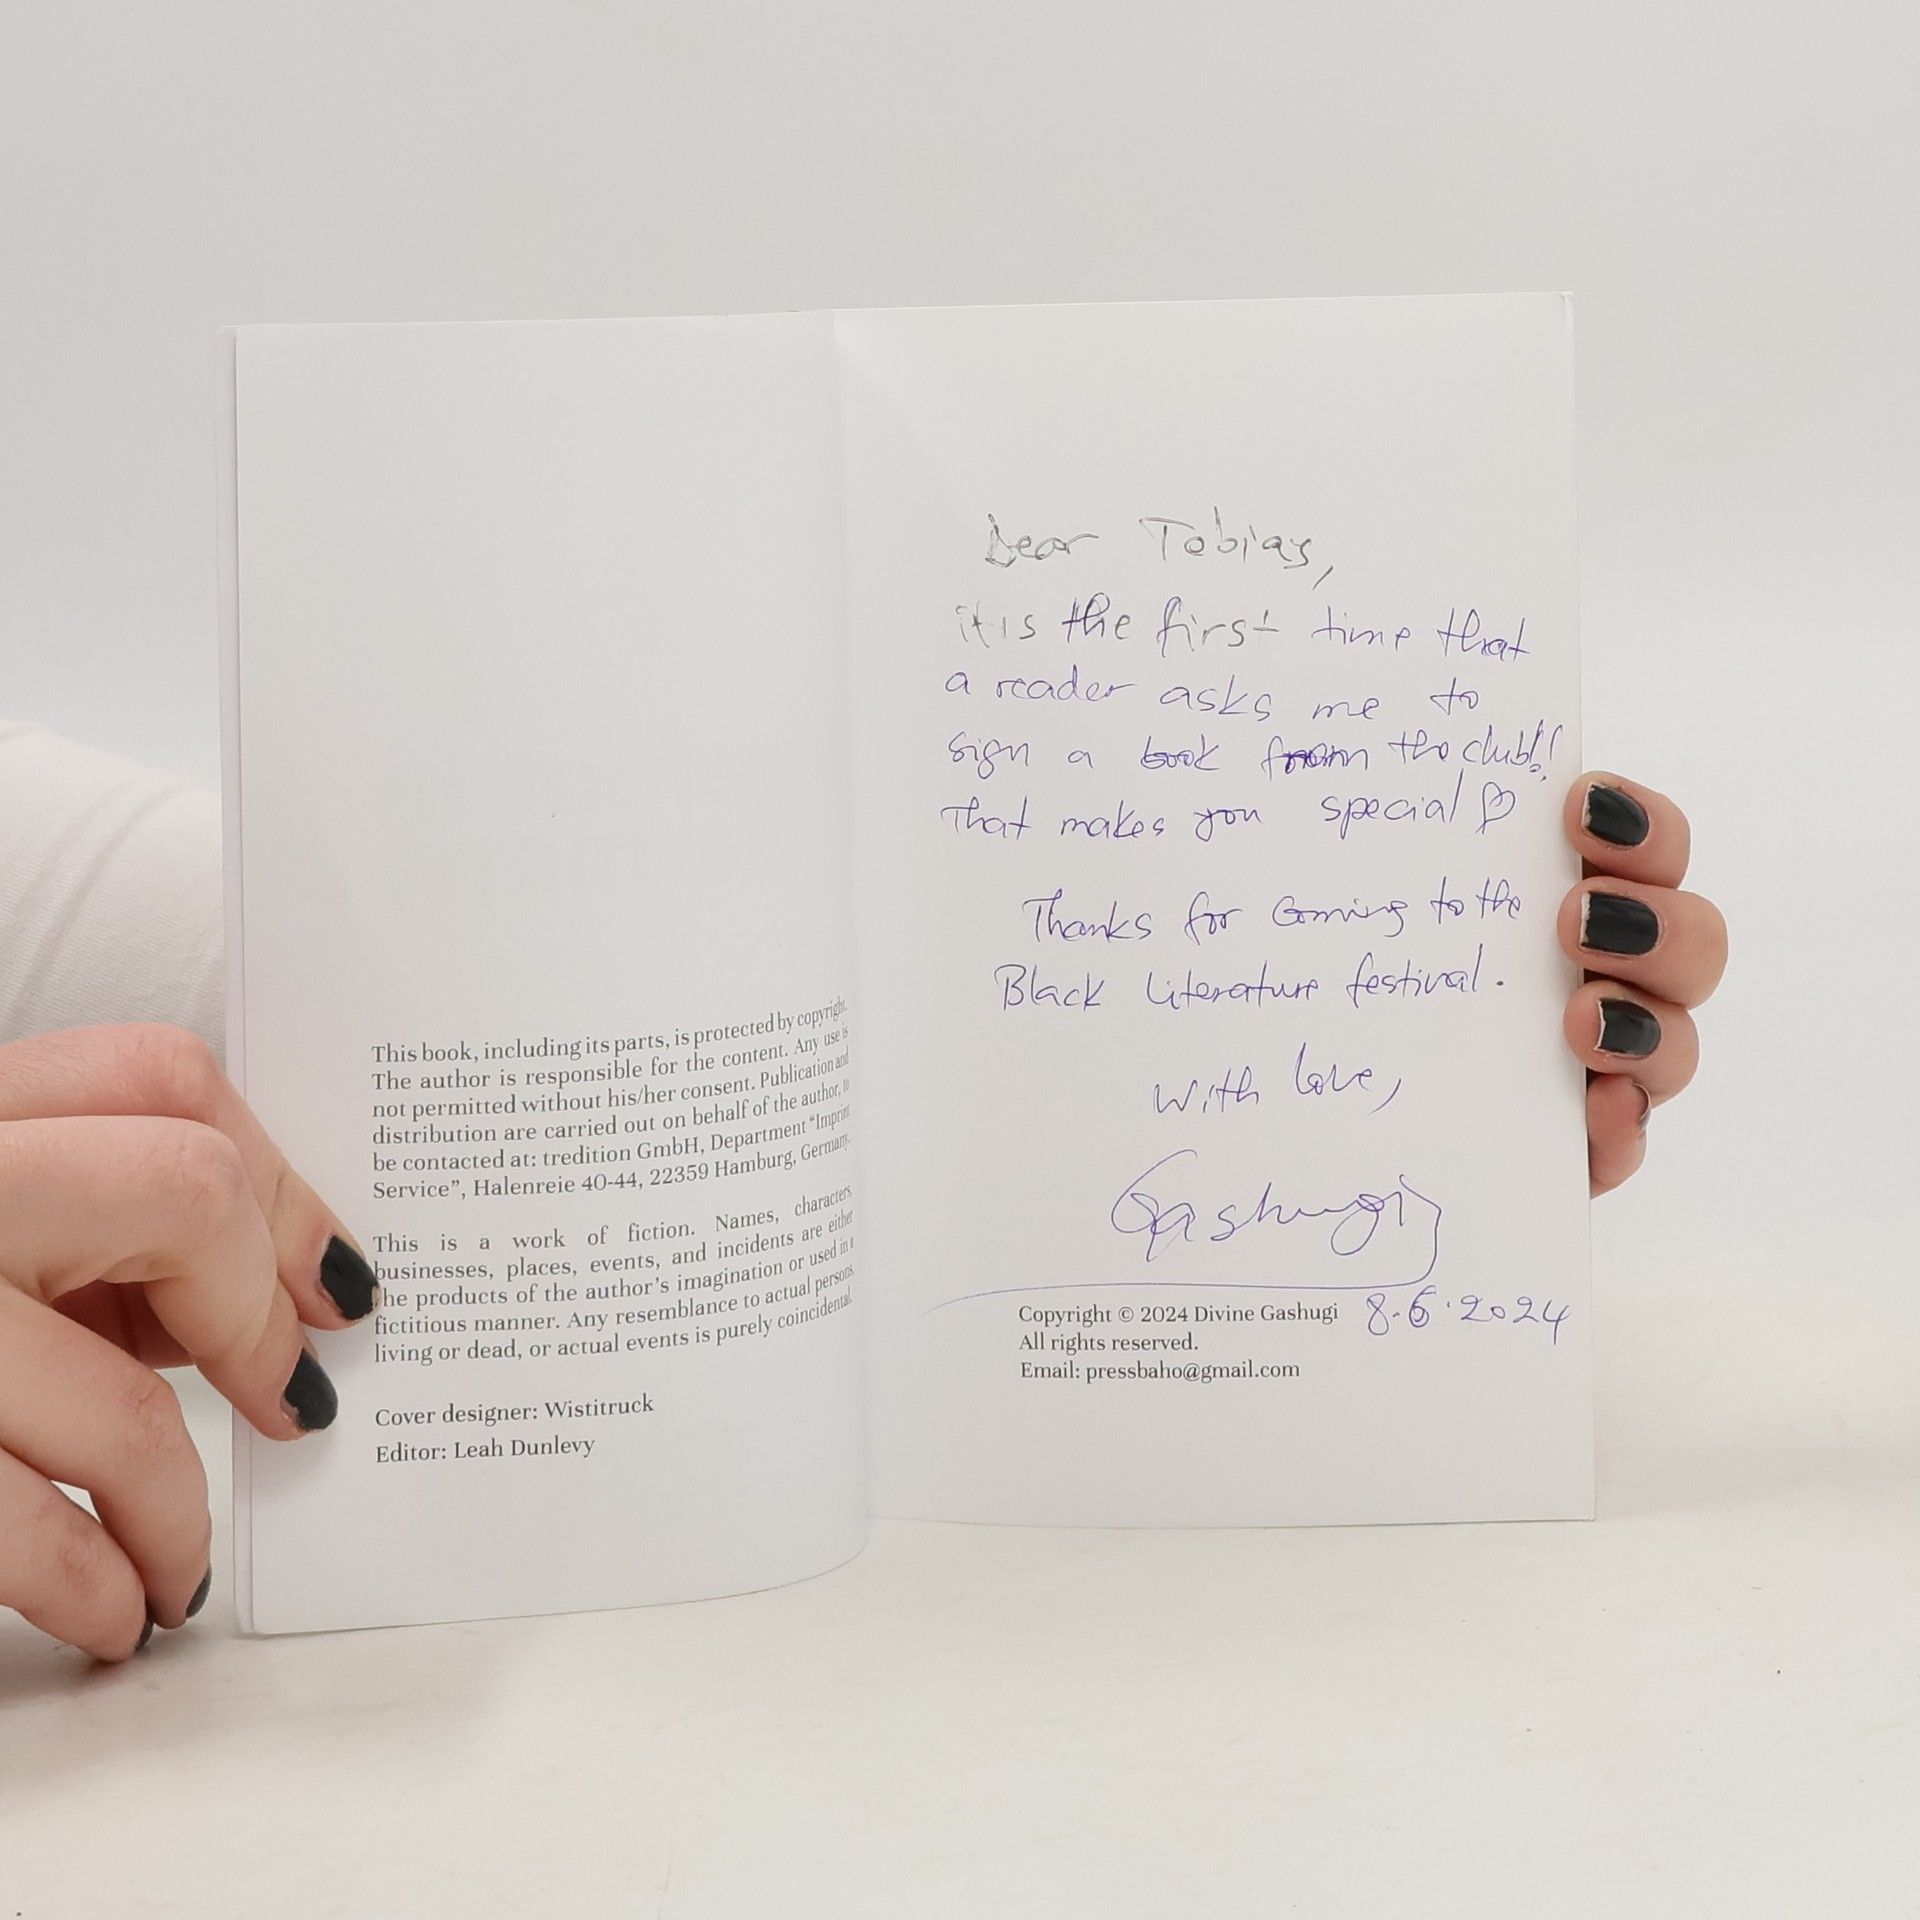 This book, including its parts, is protected by copyright.
The author is responsible for the content. Any use is
not permitted without his/her consent. Publication and
distribution are carried out on behalf of the author, to
be contacted at: tredition GmbH, Department "Imprint
Service", Halenreie 40-44, 22359 Hamburg, Germany.
This is a work of fiction. Names, characters,
businesses, places, events, and incidents are either
the products of the author's imagination or used in a
fictitious manner. Any resemblance to actual persons,
living or dead, or actual events is purely coincidental.
Cover designer: Wistitruck
Editor: Leah Dunlevy
Dear Tobias,
it is the first time that
a reader asks me to
sign a book from the club!!
That makes you special ♡
Thanks for coming to the
Black Literature festival.
With love,
Gashugi
8.6.2024
Copyright © 2024 Divine Gashugi
All rights reserved.
Email: pressbaho@gmail.com